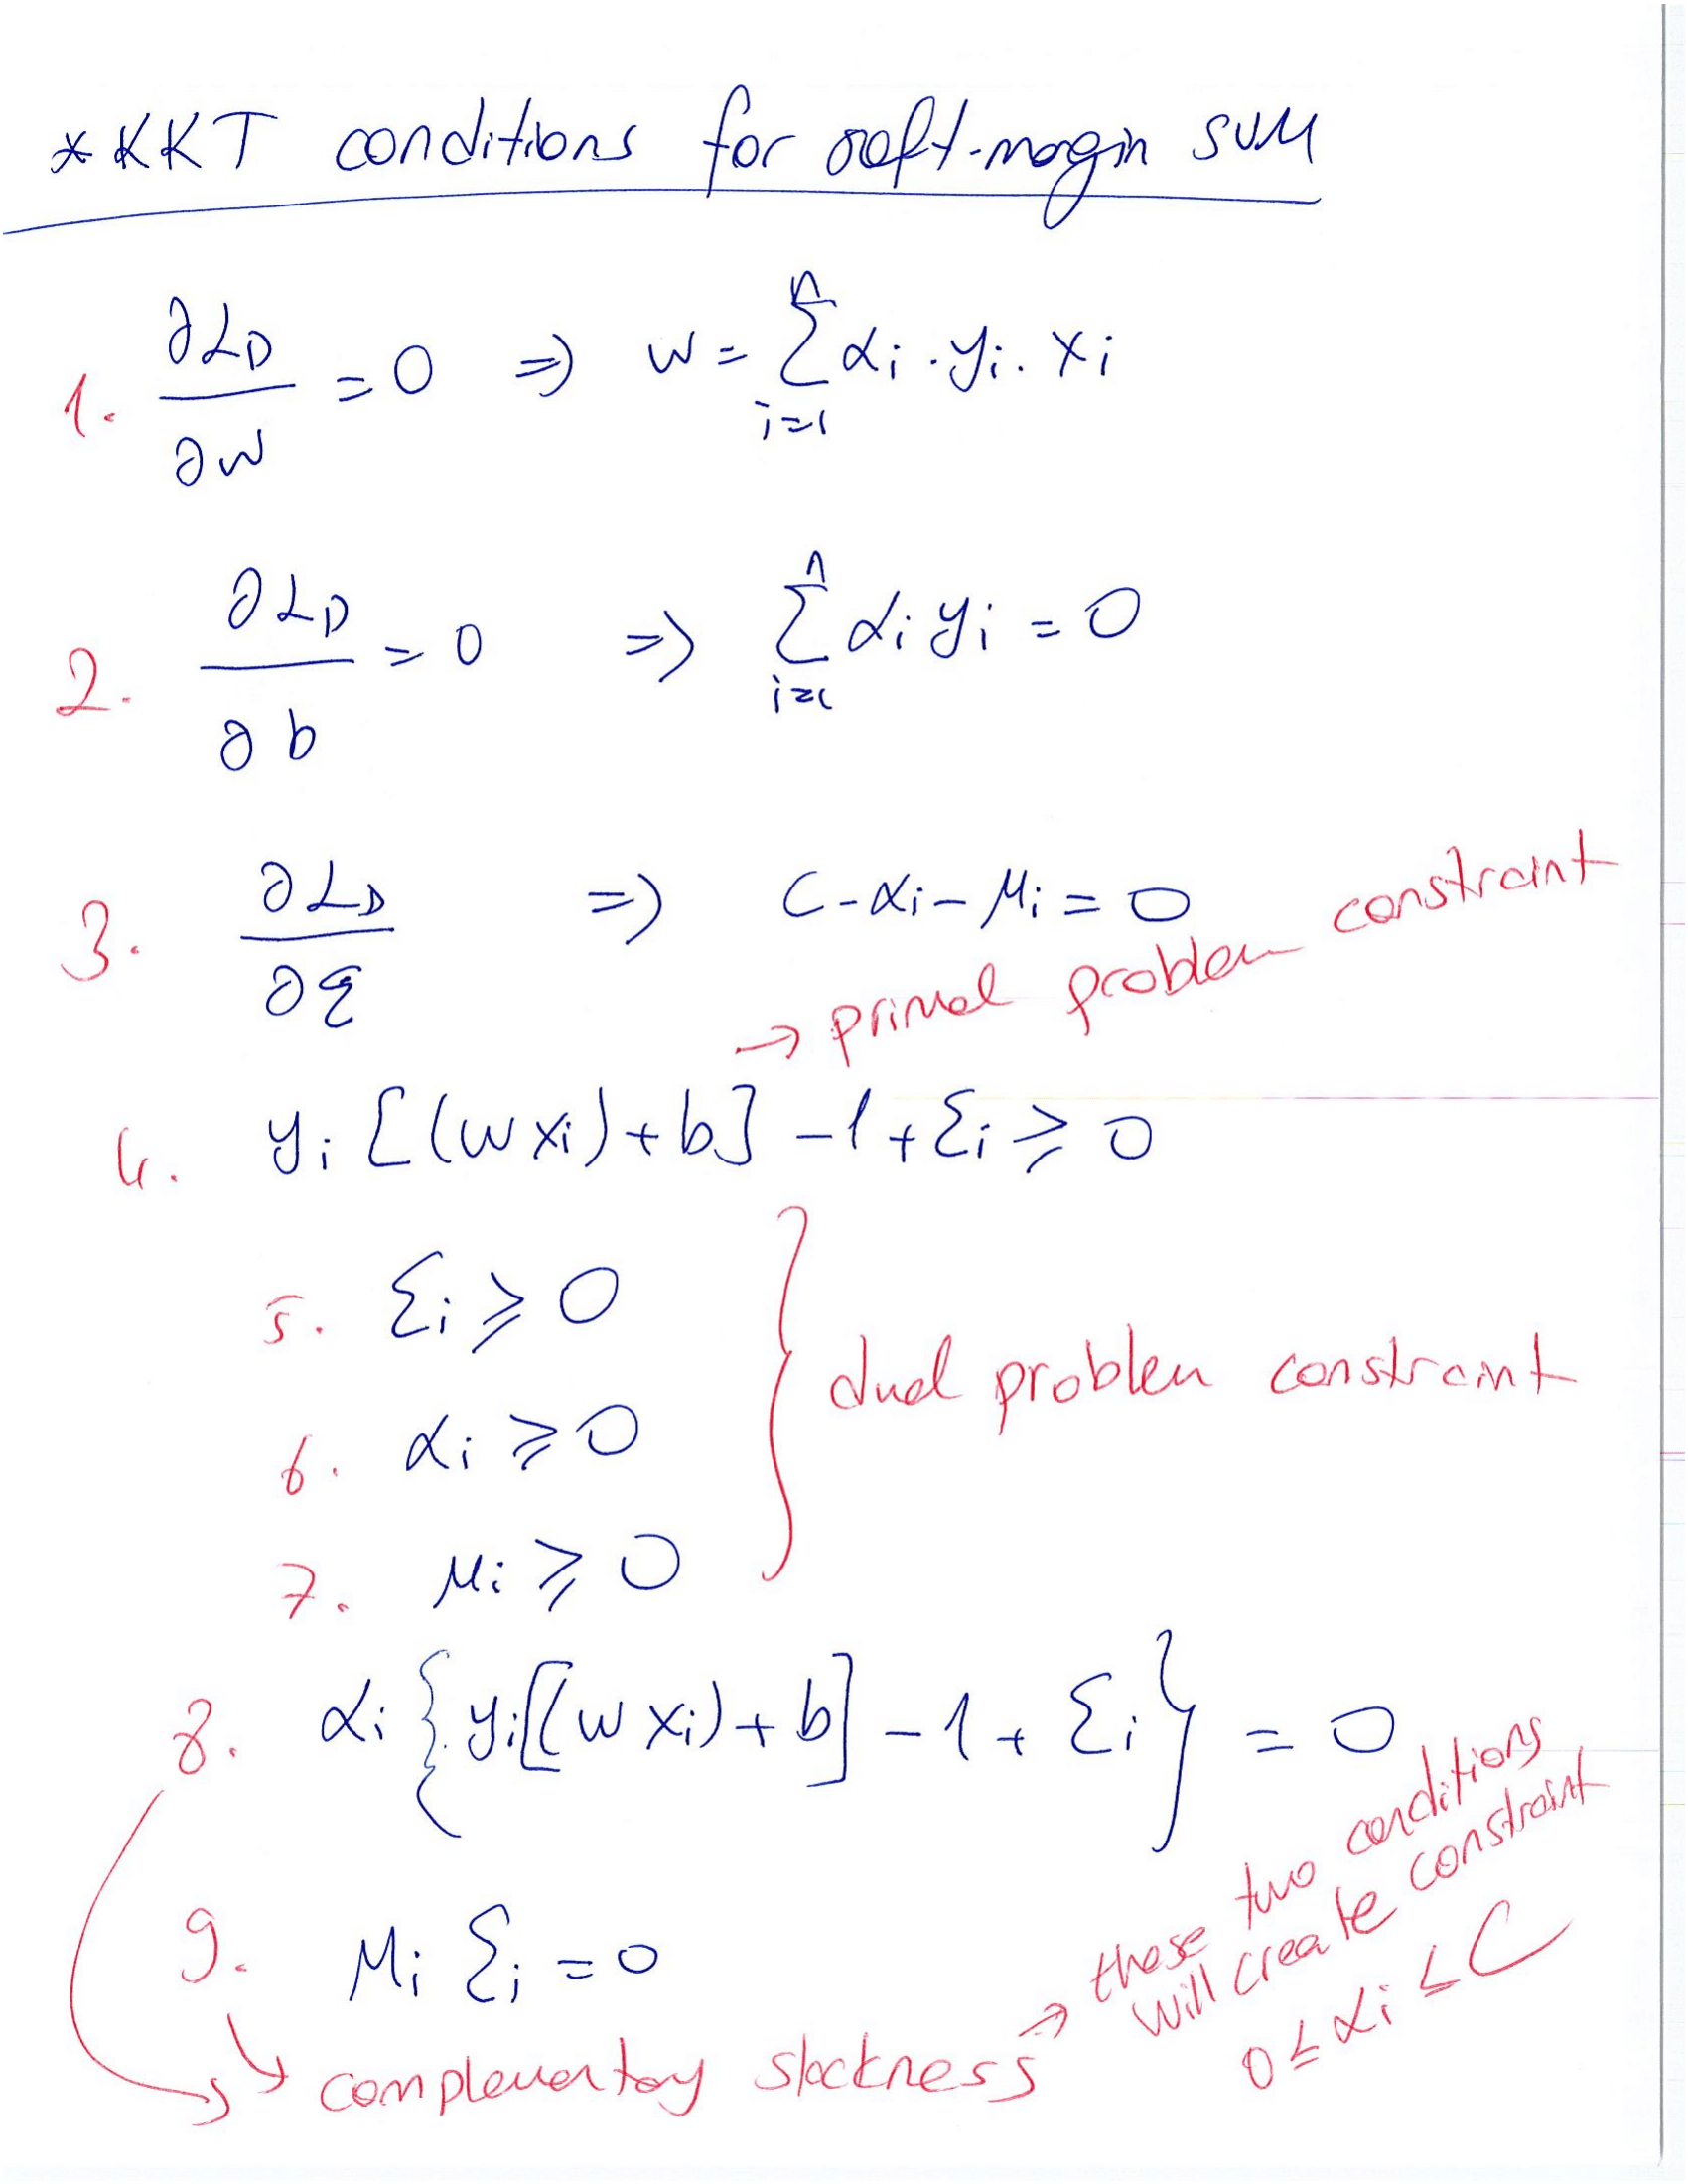 * KKT conditions for soft-margin SVM
1. ∂L_D/∂w = 0 => w = Σ_{i=1}^{n} αi · yi · xi
2. ∂L_D/∂b = 0 => Σ_{i=1}^{n} αi yi = 0
3. ∂L_D/∂ξ => C - αi - μi = 0
→ primal problem constraint
4. yi [(w xi) + b] - 1 + ξi ≥ 0
5. ξi ≥ 0
6. αi ≥ 0
7. μi ≥ 0
} dual problem constraint
8. αi { yi[(w xi) + b] - 1 + ξi } = 0
9. μi ξi = 0
complementary slackness
→ these two conditions
will create constraint
0 ≤ αi ≤ C